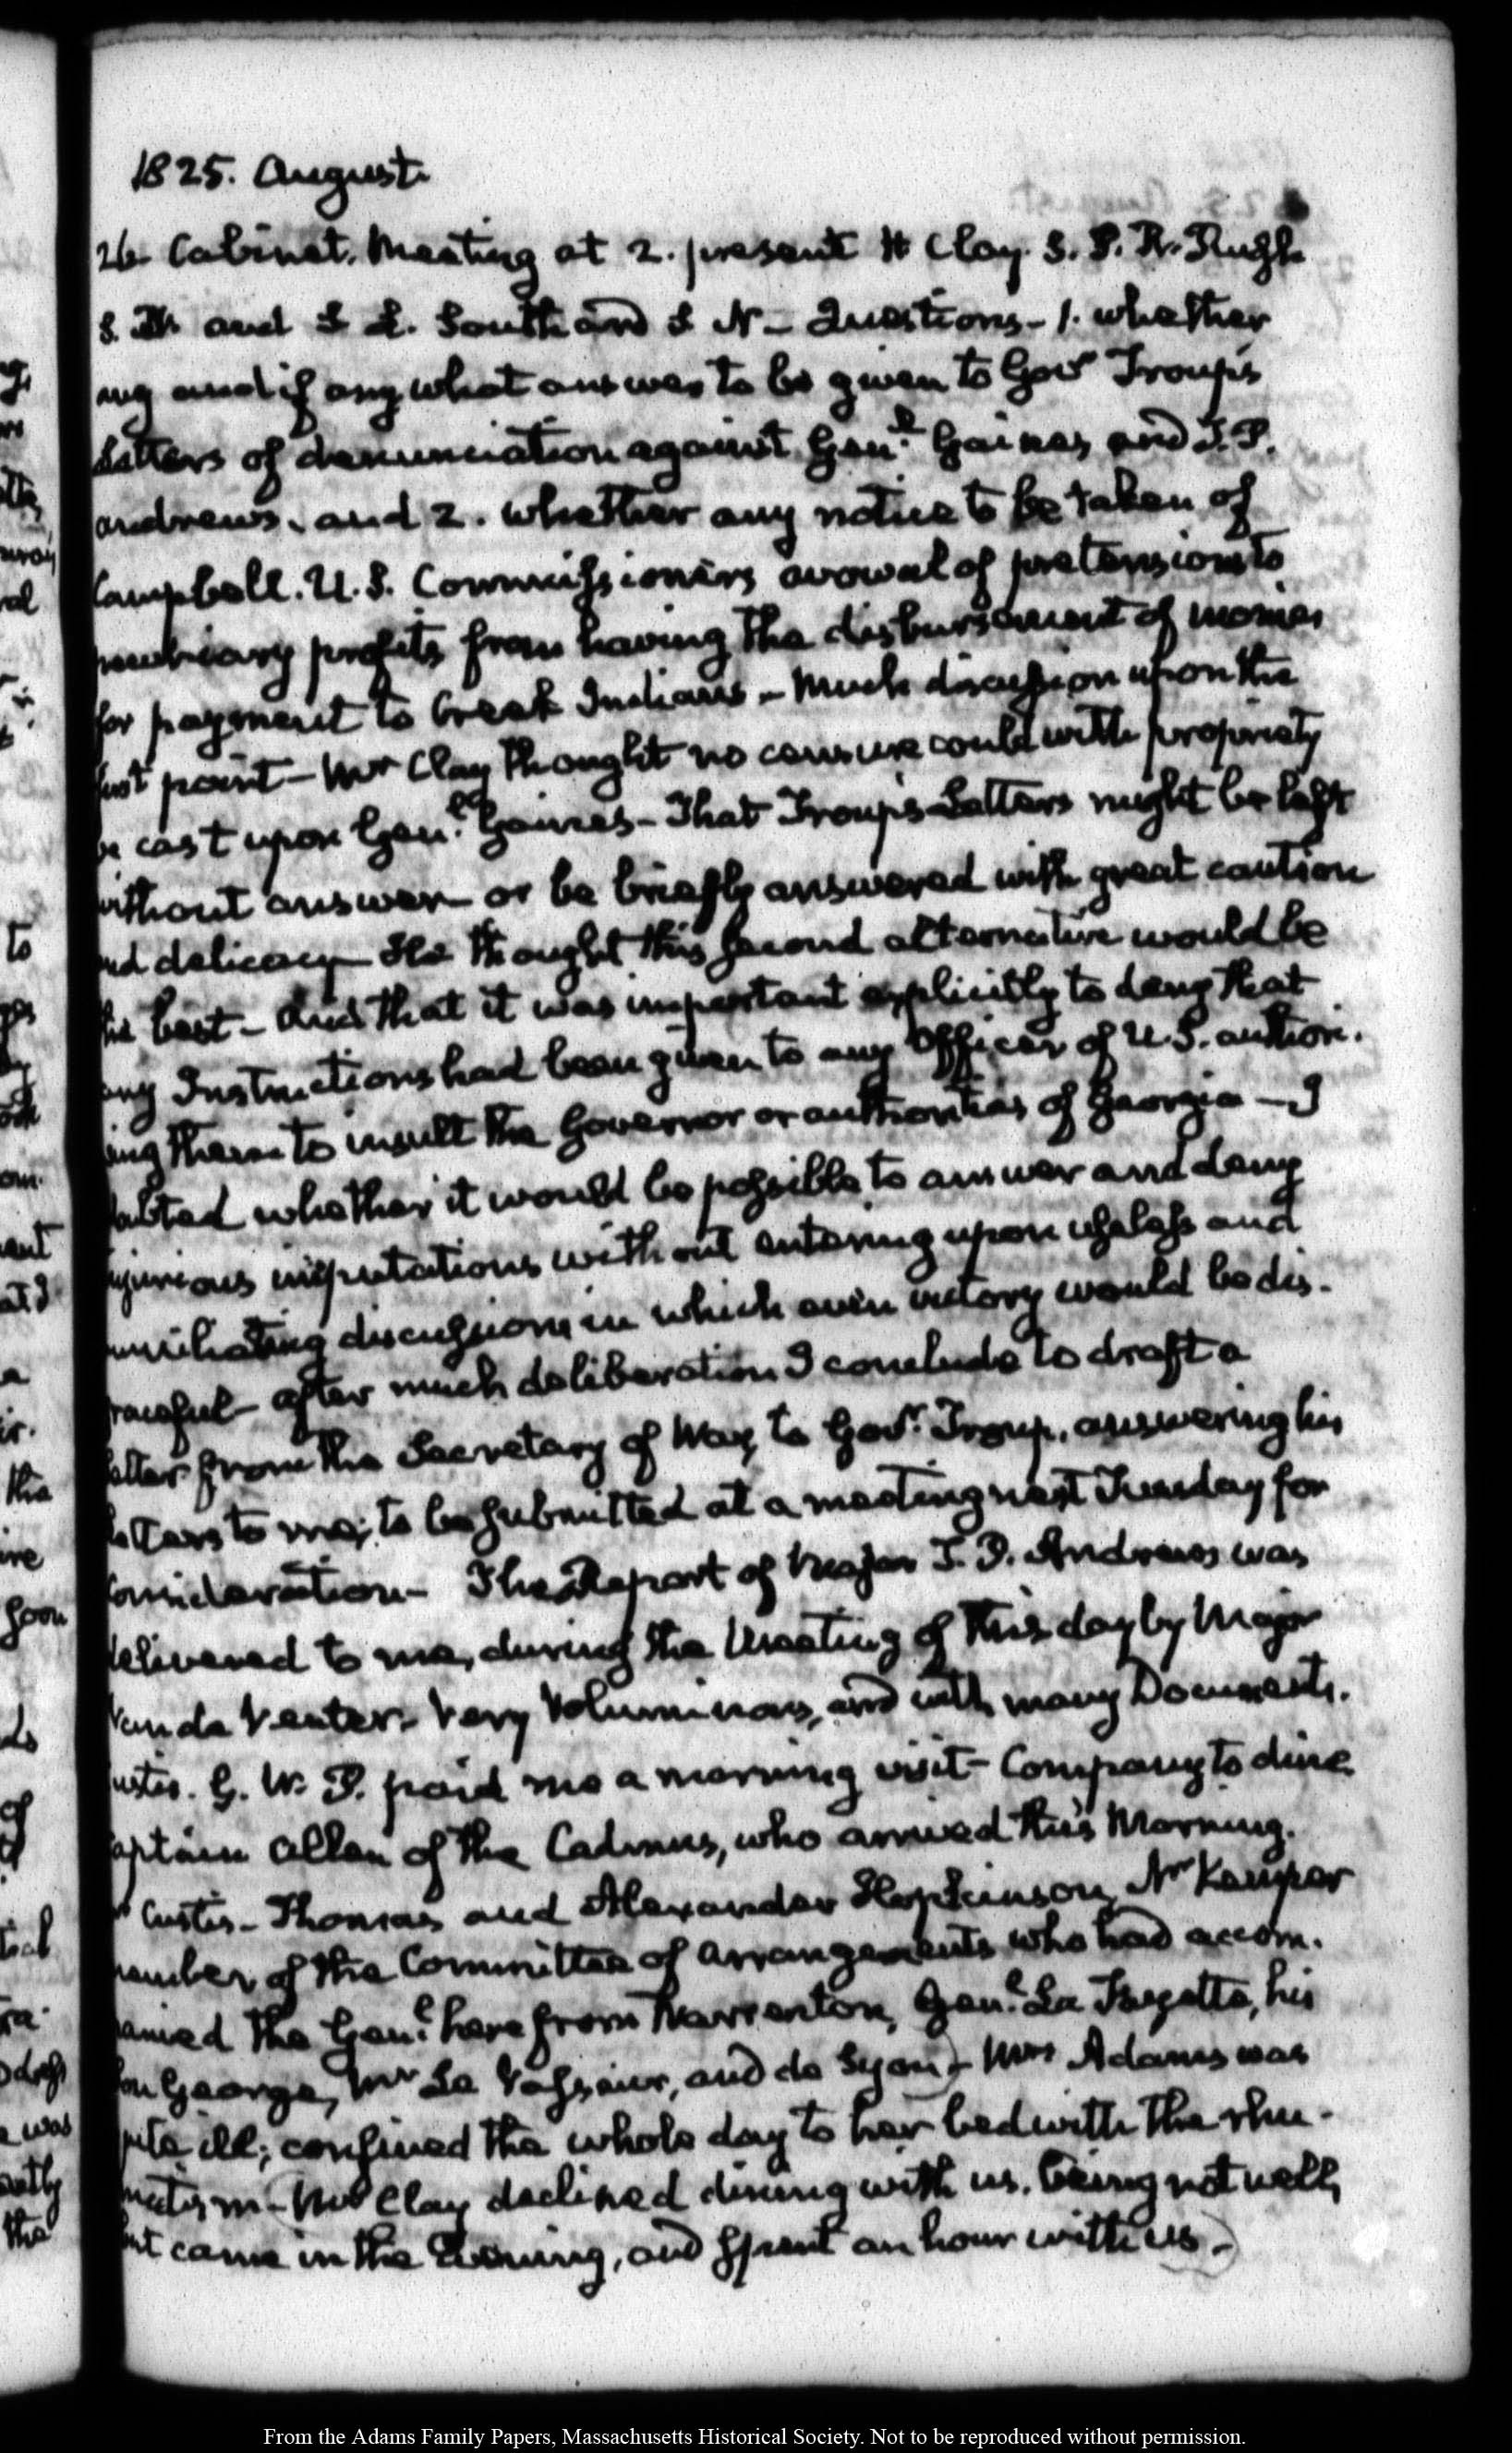 1825. August.
26. Cabinet. Meeting at 2. present H Clay. S. S. R. Rush
S. Th and S L. Southard S N— Questions— 1. whether
any and if any what answer to be given to Govr Troup's
Letters of denunciation against Genl. Gaines and T. P.
Andrews. and 2. whether any notice to be taken of
Campbell. U.S. Commissioners avowal of pretensions to
pecuniary profits from having the disbursement of monies
for payment to Creek Indians— Much discussion upon the
first point— Mr Clay thought no censure could with propriety
be cast upon Genl. Gaines— That Troup's Letters might be left
without answer— or be briefly answered with great caution
and delicacy— He thought this second alternative would be
the best— and that it was important explicitly to deny that
any Instructions had been given to any Officer of U.S. authori-
zing them to insult the Governor or authorities of Georgia— I
doubted whether it would be possible to answer and deny
injurious imputations without entering upon useless and
humiliating discussions in which even victory would be dis-
graceful— after much deliberation I conclude to draft a
Letter from the Secretary of War, to Govr. Troup, answering his
Letters to me; to be submitted at a meeting next Tuesday for
consideration— The Report of Major T. P. Andrews was
delivered to me, during the Meeting of this day by Major
Vande Venter— Very Voluminous, and with many Documents.
Custis. G. W. P. paid me a morning visit— Company to dine
Captain Allen of the Cadmus, who arrived this Morning.
Mr Custis— Thomas and Alexander Hopkinson, Mr Kemper
member of the Committee of Arrangements who had accom-
panied the Genl. here from Warrenton, Genl. La Fayette, his
Son George, Mr Le Vasseur, and de Syon)— Mrs Adams was
quite ill; confined the whole day to her bed with the rheu-
matism— Mr Clay declined dining with us. being not well,
but came in the Evening, and spent an hour with us.—